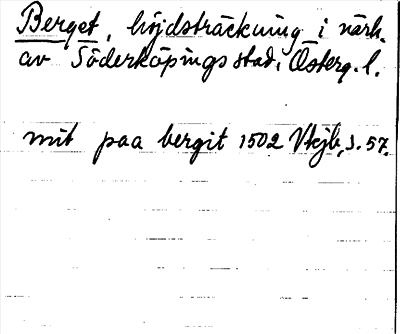 Berget, höjdsträckning i närh.
av Söderköpings stad, Österg. l.
mit paa bergit 1502 Vkjb, s. 57.